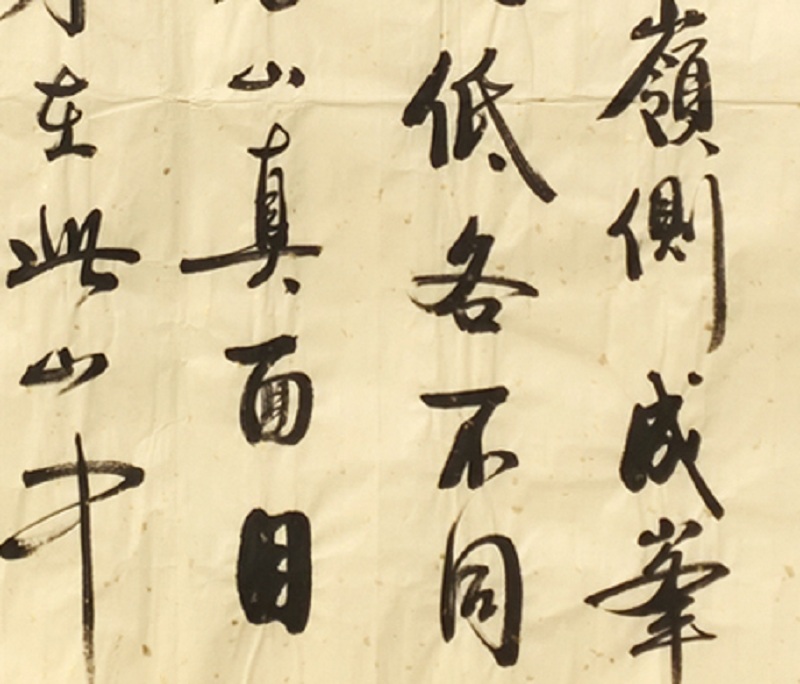 嶺側成峯
低各不同
山真面目
在此山中